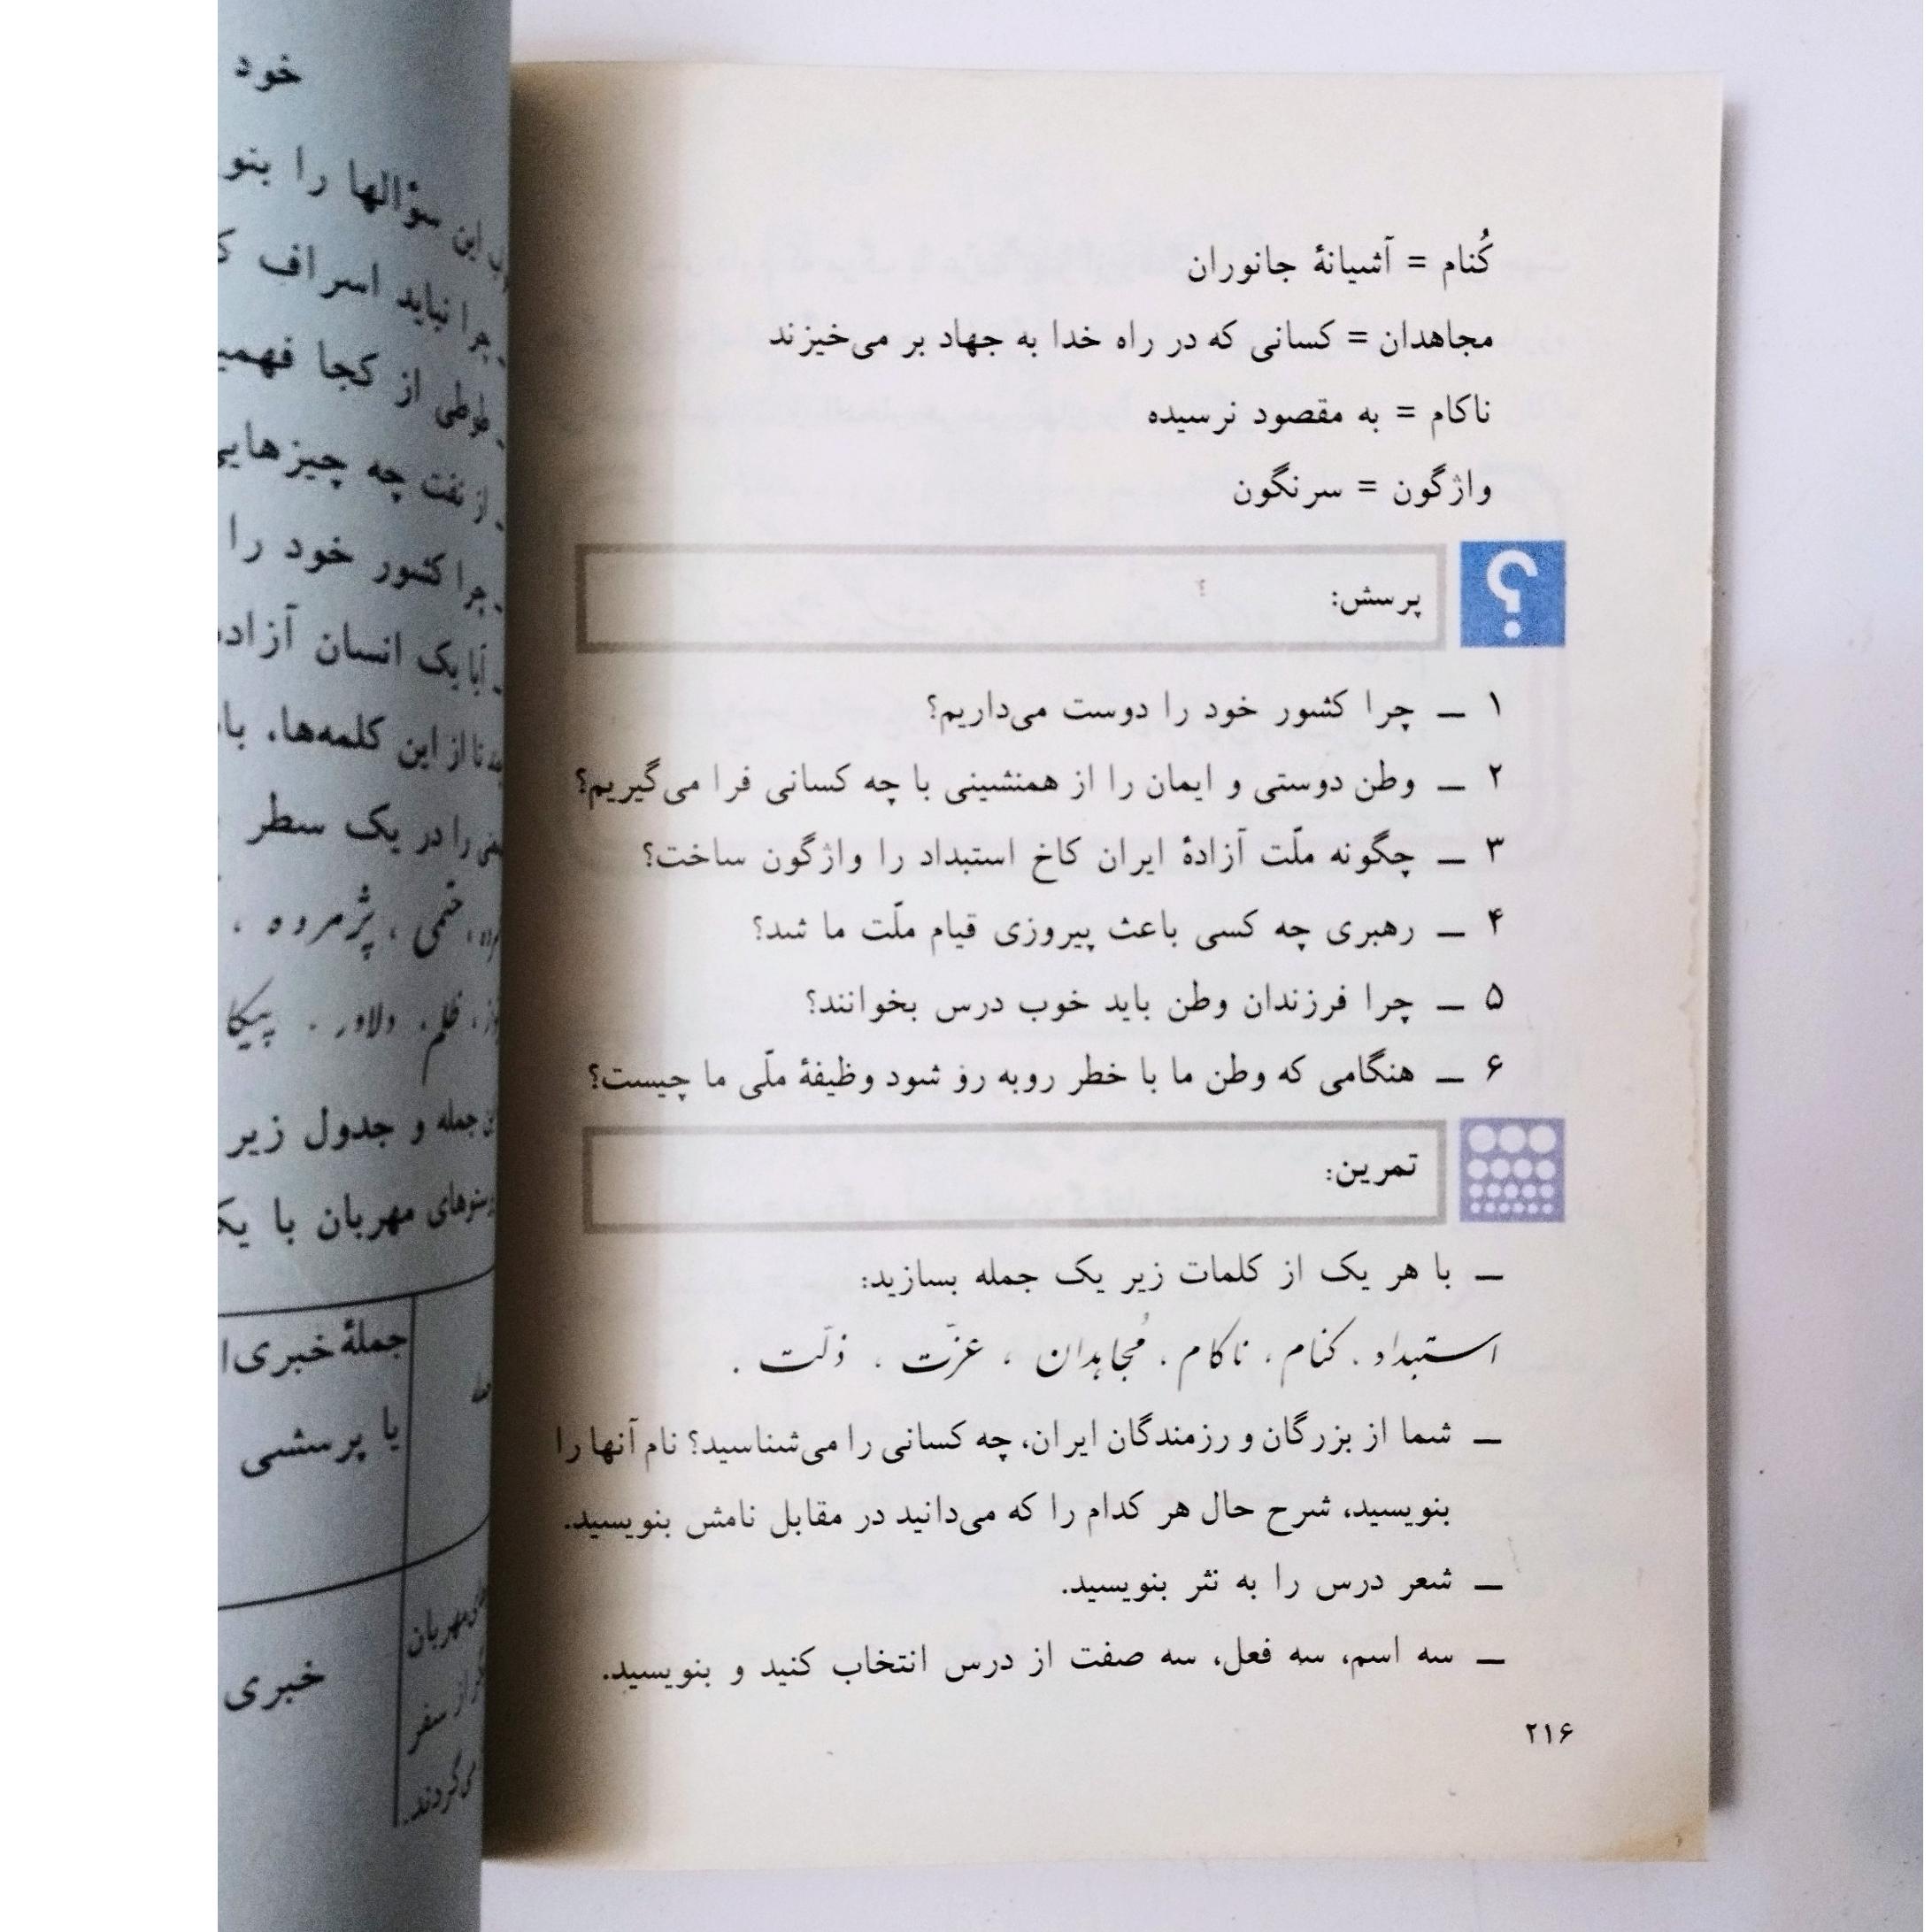 کُنام = آشیانهٔ جانوران
مجاهدان = کسانی که در راه خدا به جهاد بر می‌خیزند
ناکام = به مقصود نرسیده
واژگون = سرنگون
پرسش:
۱ ــ چرا کشور خود را دوست می‌داریم؟
۲ ــ وطن دوستی و ایمان را از همنشینی با چه کسانی فرا می‌گیریم؟
۳ ــ چگونه ملّت آزادهٔ ایران کاخ استبداد را واژگون ساخت؟
۴ ــ رهبری چه کسی باعث پیروزی قیام ملّت ما شد؟
۵ ــ چرا فرزندان وطن باید خوب درس بخوانند؟
۶ ــ هنگامی که وطن ما با خطر روبه رو شود وظیفهٔ ملّی ما چیست؟
تمرین:
ــ با هر یک از کلمات زیر یک جمله بسازید:
استبداد، کنام، ناکام، مُجاهدان، عزّت، ذلّت.
ــ شما از بزرگان و رزمندگان ایران، چه کسانی را می‌شناسید؟ نام آنها را
بنویسید، شرح حال هر کدام را که می‌دانید در مقابل نامش بنویسید.
ــ شعر درس را به نثر بنویسید.
ــ سه اسم، سه فعل، سه صفت از درس انتخاب کنید و بنویسید.
۲۱۶
خود
این سؤالها را
ــ چرا نباید اسراف
ــ طوطی از کجا
ــ از نفت چه
ــ چرا کشور خود را
یک انسان
از این کلمه‌ها،
را در یک سطر
ختمی، پژمرده،
ظلم، دلاور،
جمله و جدول زیر
مهربان با
جملهٔ خبری
یا پرسشی
مهربان
خبری
از سفر